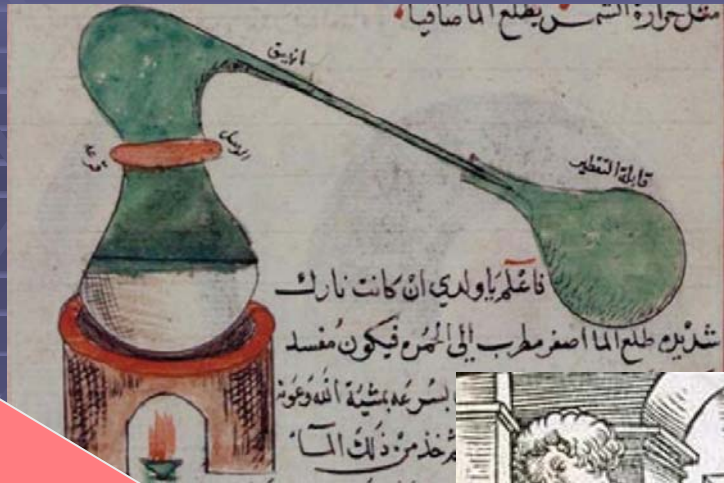 مثل حرارة الشمس يطلع الما صافيا
انبيق
قابلة التقطير
فاعلم يا ولدي ان كانت نارك
شديده طلع الما اصفر مطرب إلى الحمره فيكون مفسد
بسرعه بمشية الله وعونه
خذ من ذلك الما